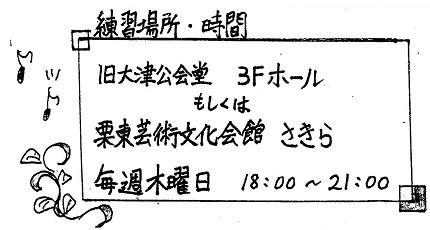 練習場所・時間
旧大津公会堂 3Fホール
もしくは
栗東芸術文化会館 さきら
毎週木曜日 18:00～21:00